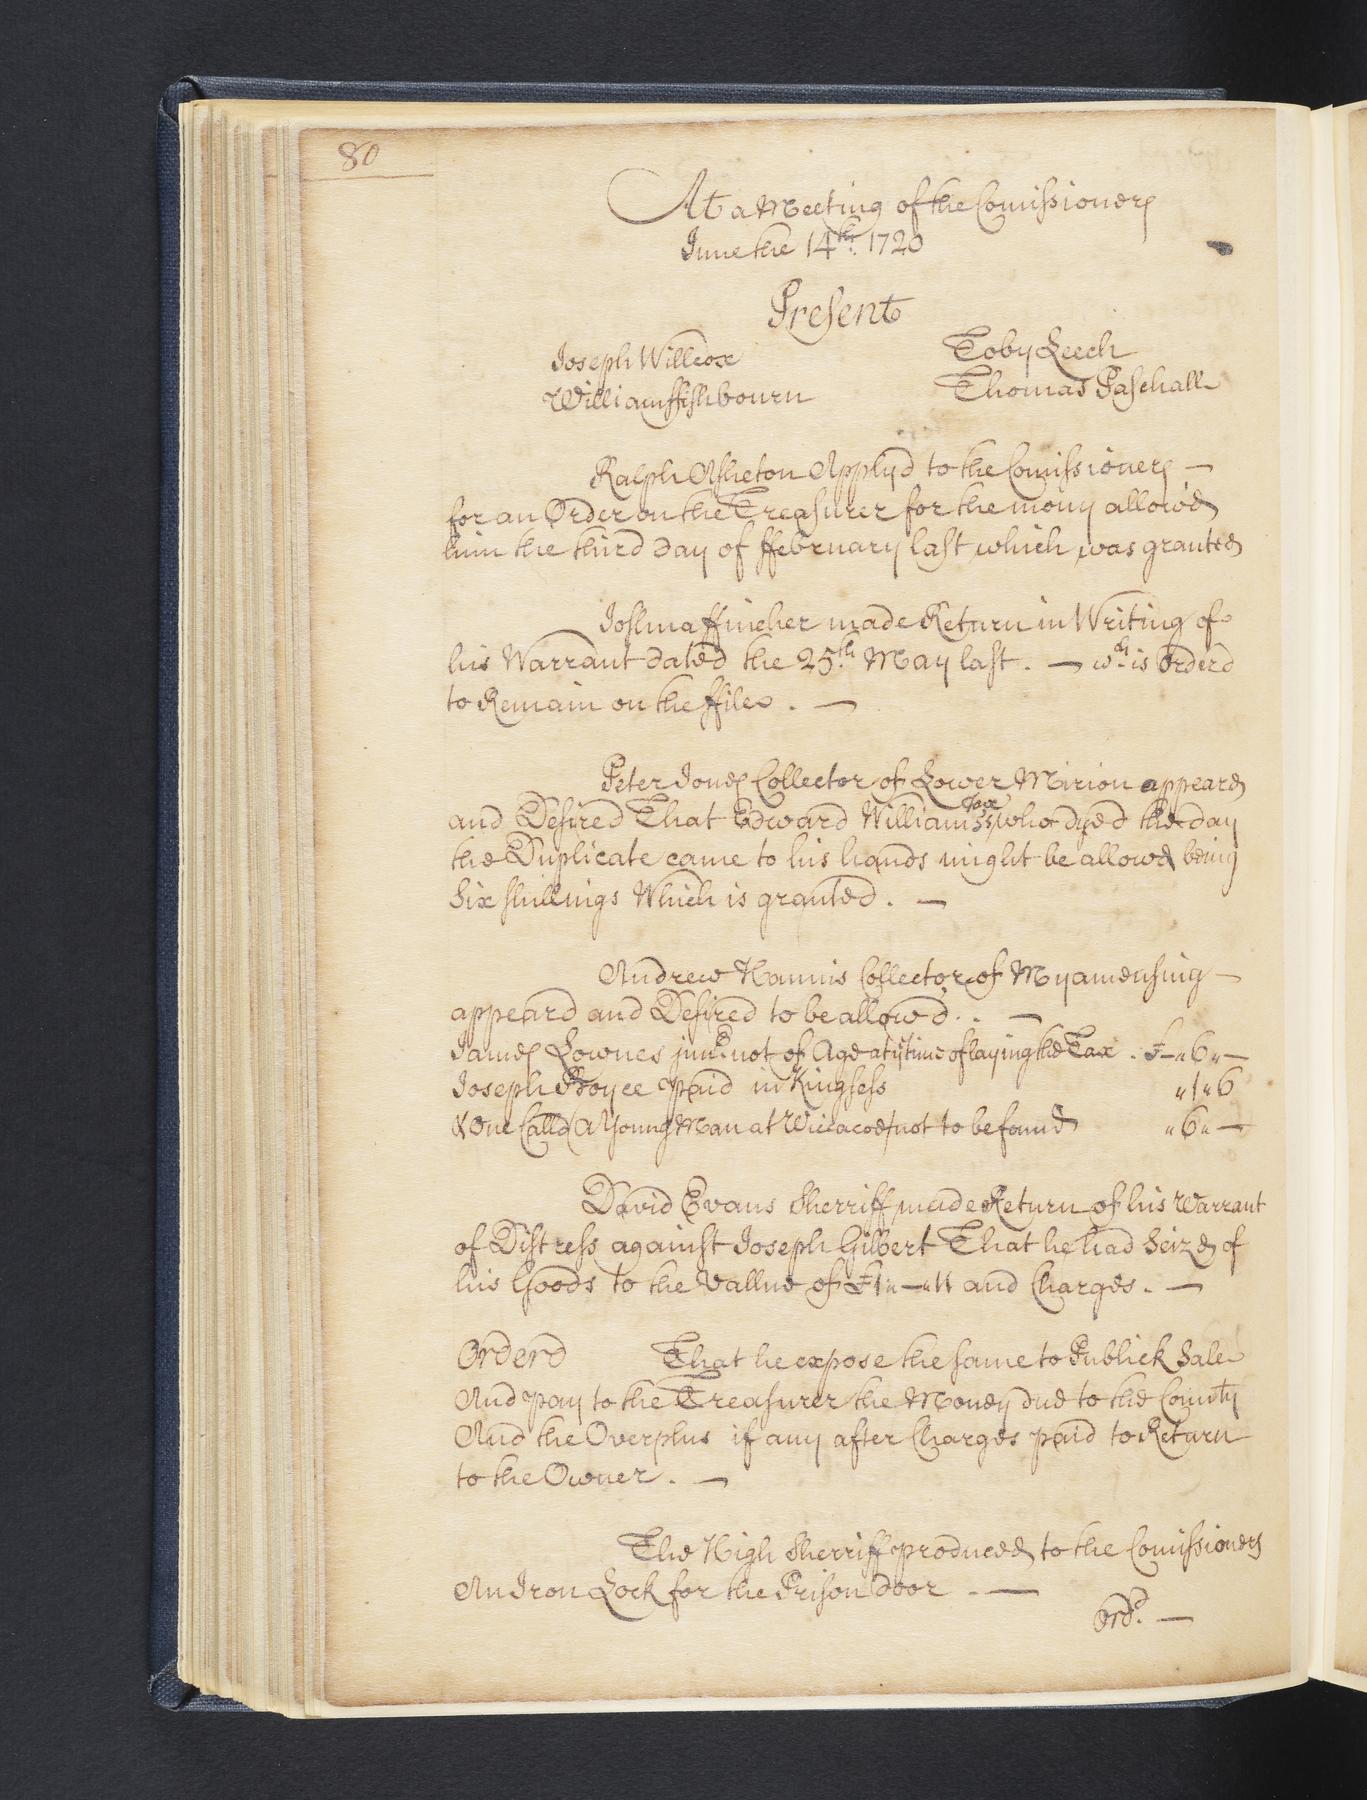 80
At a Meeting of the Comissioners
June the 14th. 1720
Present
Joseph Willcox
Toby Leech
William ffishbourn
Thomas Paschall
Ralph Asheton Applyd to the Comissioners —
for an Order on the Treasurer for the mony allow'd
him the third day of ffebruary last which was granted
Joshua ffincher made Return in Writing of
his Warrant dated the 25th. May last. — wch. is orderd
to Remain on the ffiles. —
Peter Jones Collector of Lower Mirion appeard
and Desired That Edward Williams's Tax who dyed the day
the Duplicate came to his hands might be allowd being
Six shillings Which is granted. —
Andrew Hannis Collector of Myamensing —
appeard and Desired to be allow'd.. —
James Lownes junr. not of Age at ye time of laying the Tax. £—„6„—
Joseph Boyce paid in Kingsess „1„6
& One Calld (A Young Man at Wiccacoe) not to be found „6„—
David Evans Sherriff made Return of his Warrant
of Distress against Joseph Gilbert That he had Seizd of
his Goods to the Vallue of £1„—„11 and Charges. —
Orderd That he expose the same to Publick Sale
And pay to the Treasurer the Money due to the County
And the Overplus if any after Charges paid to Return
to the Owner. —
The High Sherriff produced to the Comissioners
An Iron Lock for the Prison door. —
Ordd. —